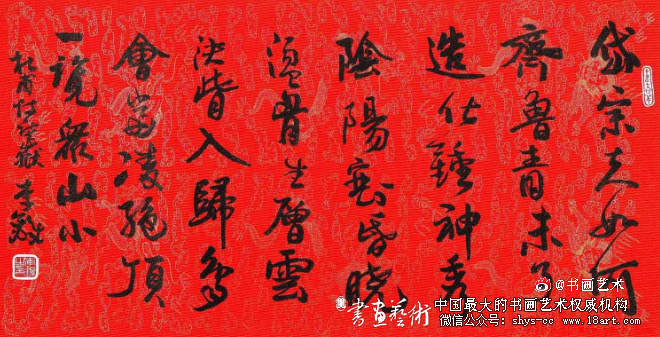 岱宗夫如何
齊魯青未了
造化鍾神秀
陰陽割昏曉
盪胷生層雲
決眥入歸鳥
會當凌絕頂
一覽衆山小
杜甫詩望嶽 李
@书画艺术
書畫藝術
中国最大的书画艺术权威机构
微信公众号：shys-cc www.18art.com